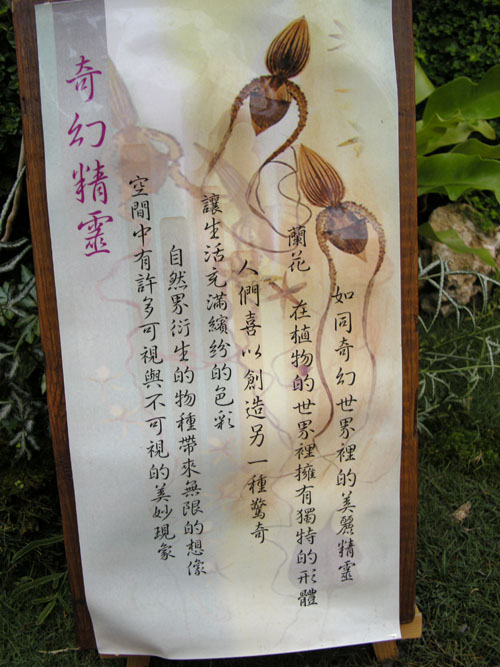 奇幻精靈
空間中有許多可視與不可視的美妙現象
自然界衍生的物種帶來無限的想像
讓生活充滿繽紛的色彩
人們喜以創造另一種驚奇
蘭花 在植物的世界裡擁有獨特的形體
如同奇幻世界裡的美麗精靈